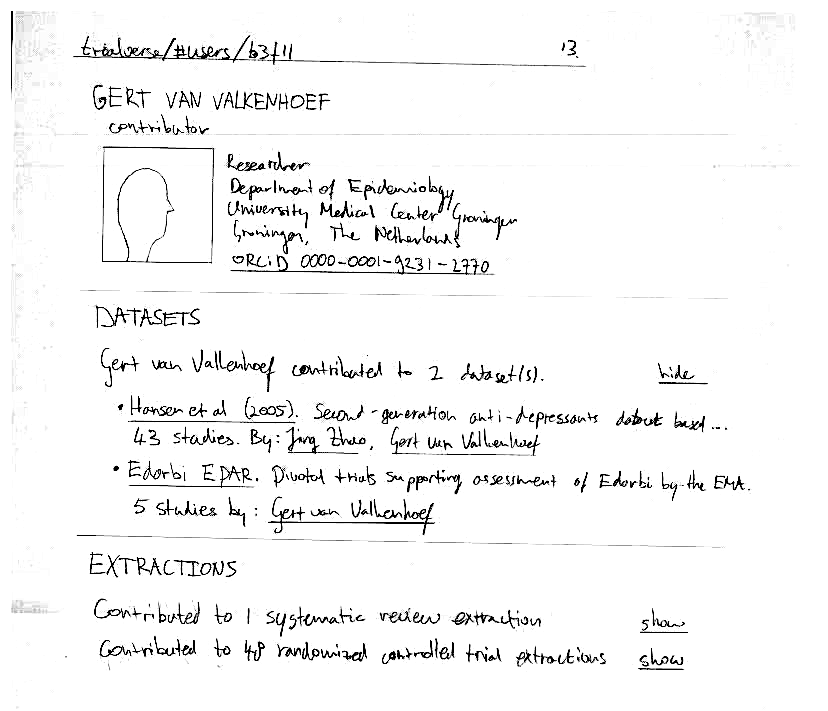 trialverse/#users/b3f11 13
GERT VAN VALKENHOEF
contributor
Researcher
Department of Epidemiology
University Medical Center Groningen
Groningen, The Netherlands
ORCiD 0000-0001-9231-2770
DATASETS
Gert van Valkenhoef contributed to 2 dataset(s). hide
• Hansen et al (2005). Second-generation anti-depressants dataset based...
43 studies. By: Jing Zhao, Gert van Valkenhoef
• Edarbi EPAR. Pivotal trials supporting assessment of Edarbi by the EMA.
5 studies by: Gert van Valkenhoef
EXTRACTIONS
Contributed to 1 systematic review extraction show
Contributed to 48 randomized controlled trial extractions show